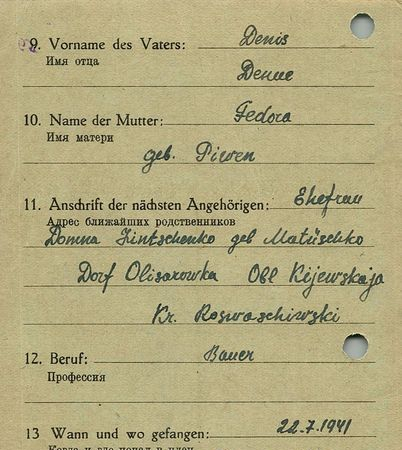 9. Vorname des Vaters: Denis
Имя отца
Denne
10. Name der Mutter: Fedora
Имя матери
geb. Piwen
11. Anschrift der nächsten Angehörigen: Ehefrau
Адрес ближайших родственников
Domna Zintschenko geb Matüschko
Dorf Olisarowka Obl Kijewskaja
Kr. Roswaschiwski
12. Beruf: Bauer
Профессия
13 Wann und wo gefangen: 22.7.1941